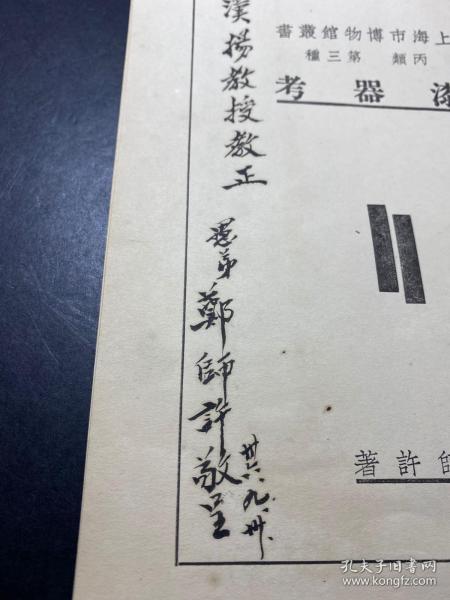 上海市博物館叢書
丙類 第三種
漆器考
師許著
漢揚教授教正
愚弟鄭師許敬呈
卅六、九、卅、
孔夫子旧书网
www.kongfz.com